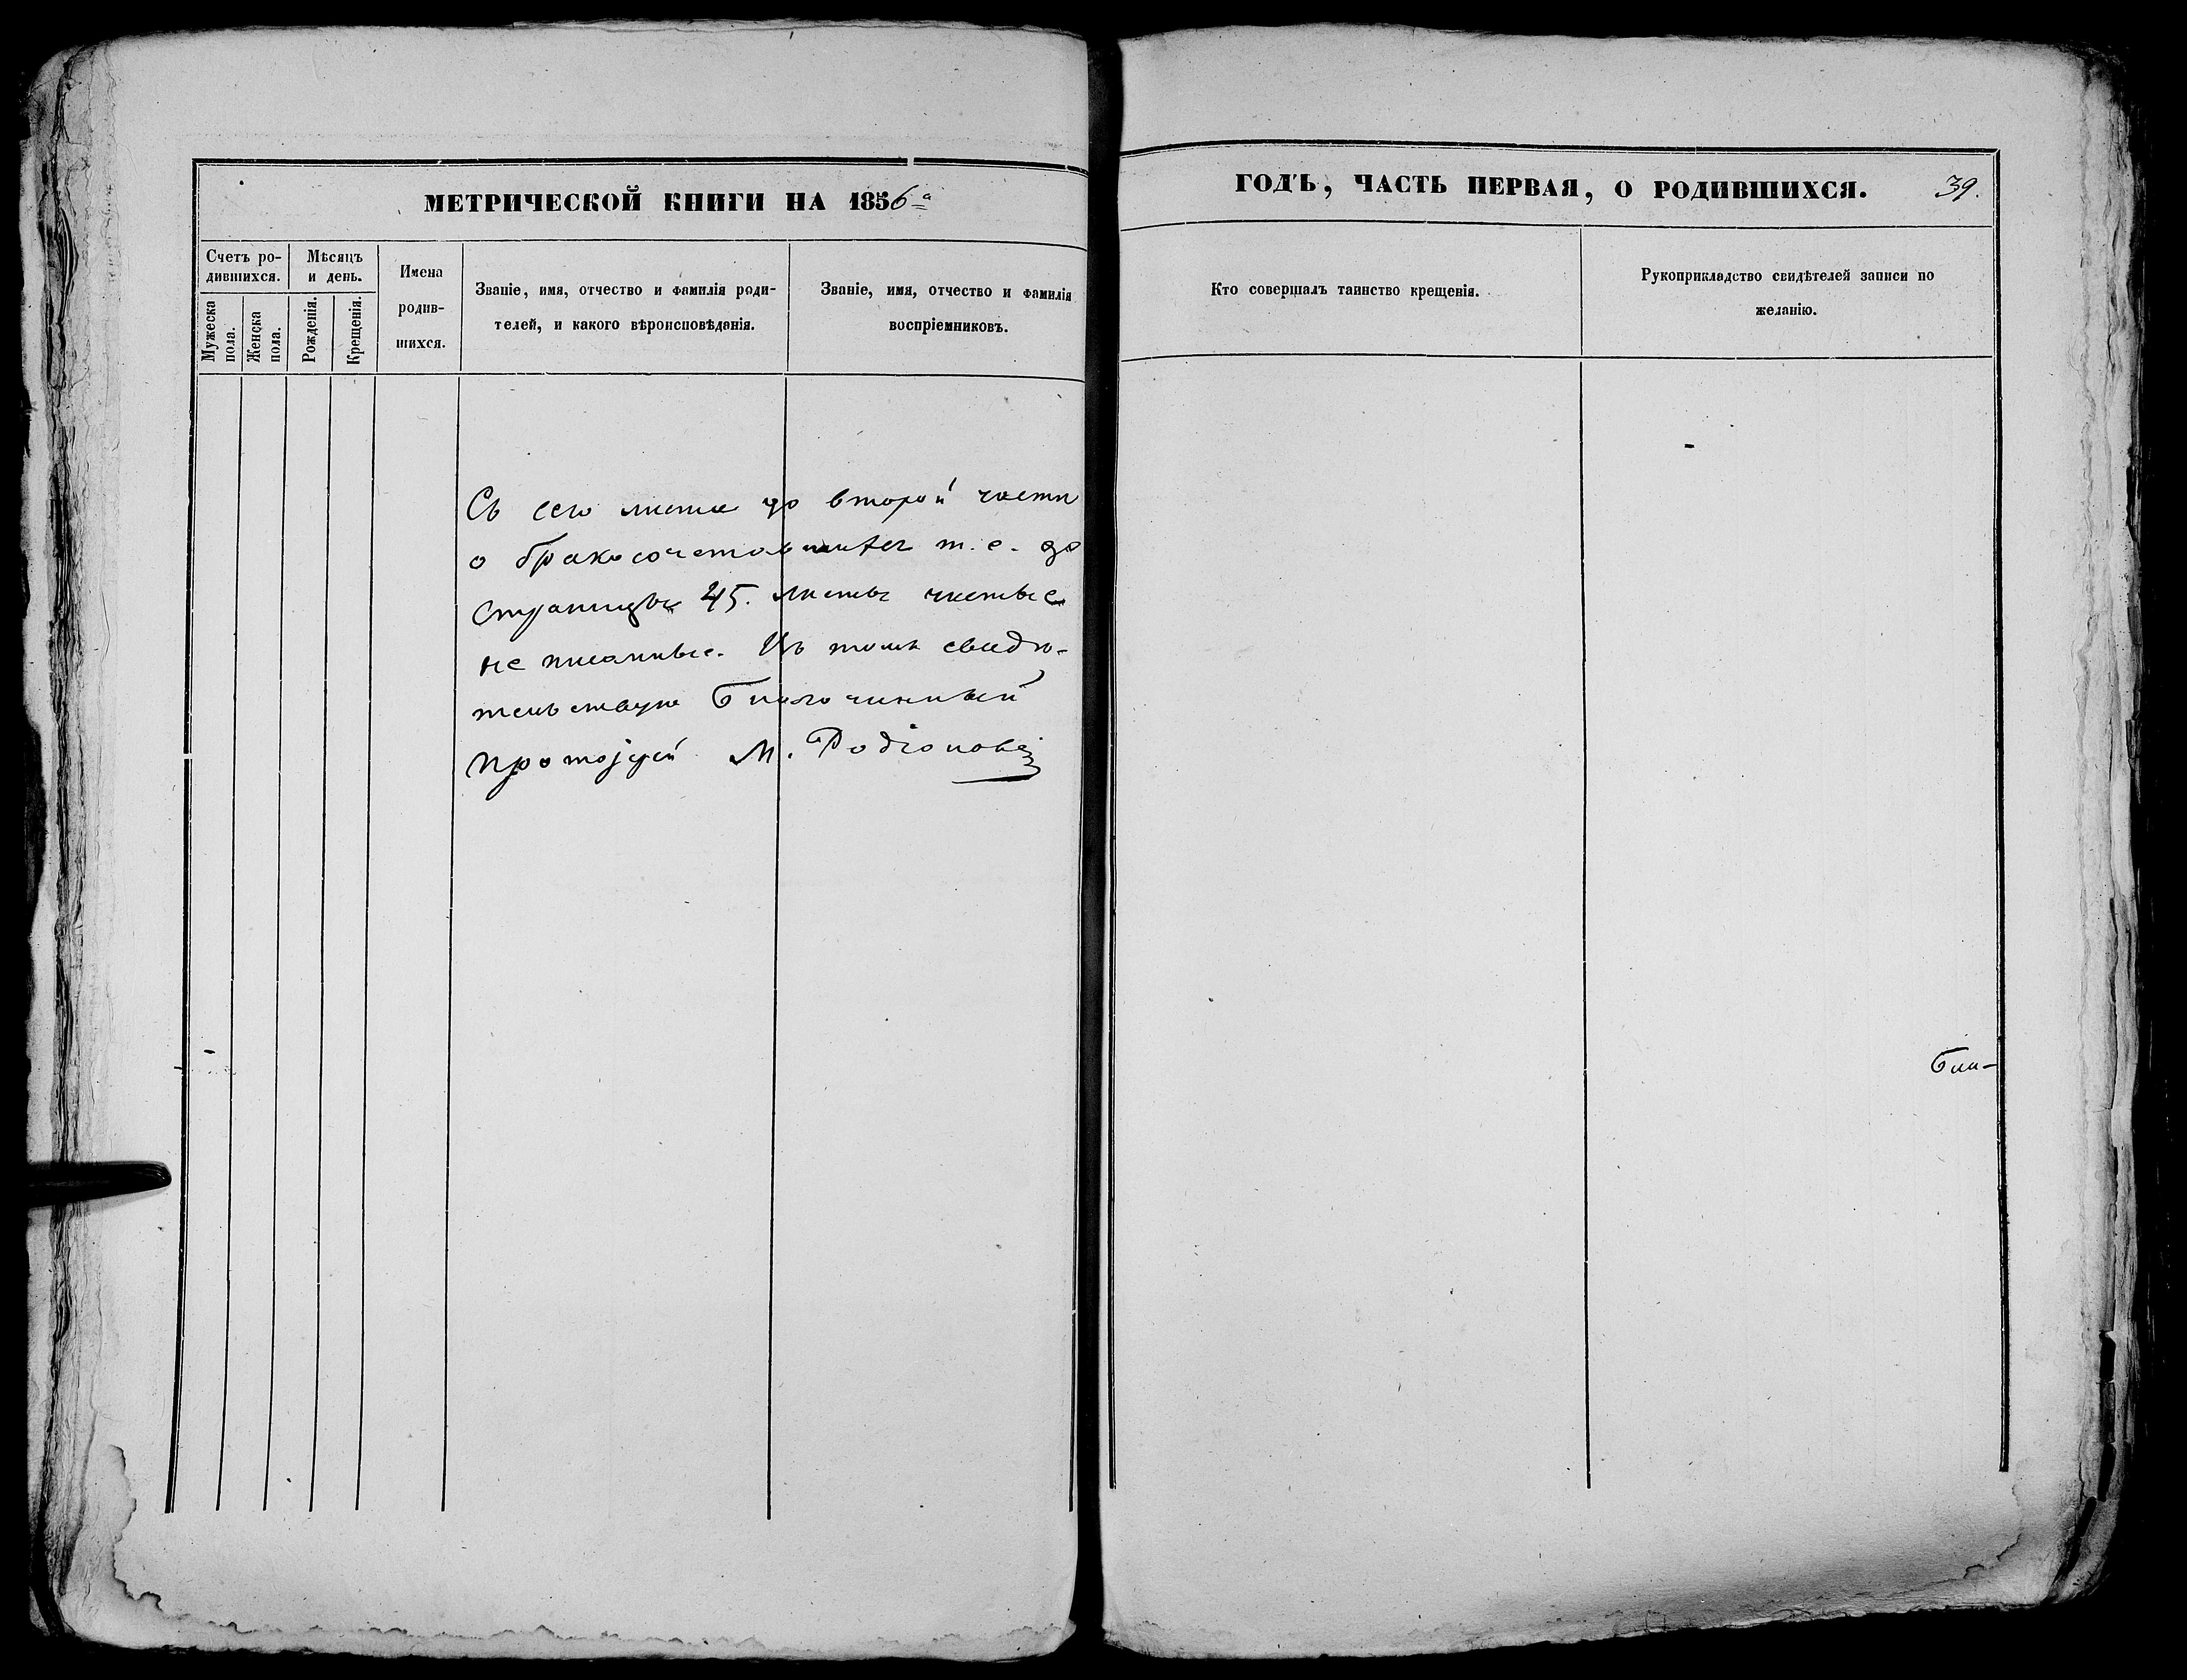 МЕТРИЧЕСКОЙ КНИГИ НА 1856-а
Счетъ ро-
дившихся.
Мѣсяцъ
и день.
Мужеска
пола.
Женска
пола.
Рожденія.
Крещенія.
Имена
родив-
шихся.
Званіе, имя, отчество и фамилія роди-
телей, и какого вѣроисповѣданія.
Званіе, имя, отчество и фамилія
воспріемниковъ.
Съ сего листа до второй части
о бракосочетавшихся т. е. до
страницы 45. листы чистые
не писанные. Въ томъ свидѣ-
тельствую Благочинный
протоіерей М. Родіоновъ
ГОДЪ, ЧАСТЬ ПЕРВАЯ, О РОДИВШИХСЯ.
39.
Кто совершалъ таинство крещенія.
Рукоприкладство свидѣтелей записи по
желанію.
Бла-